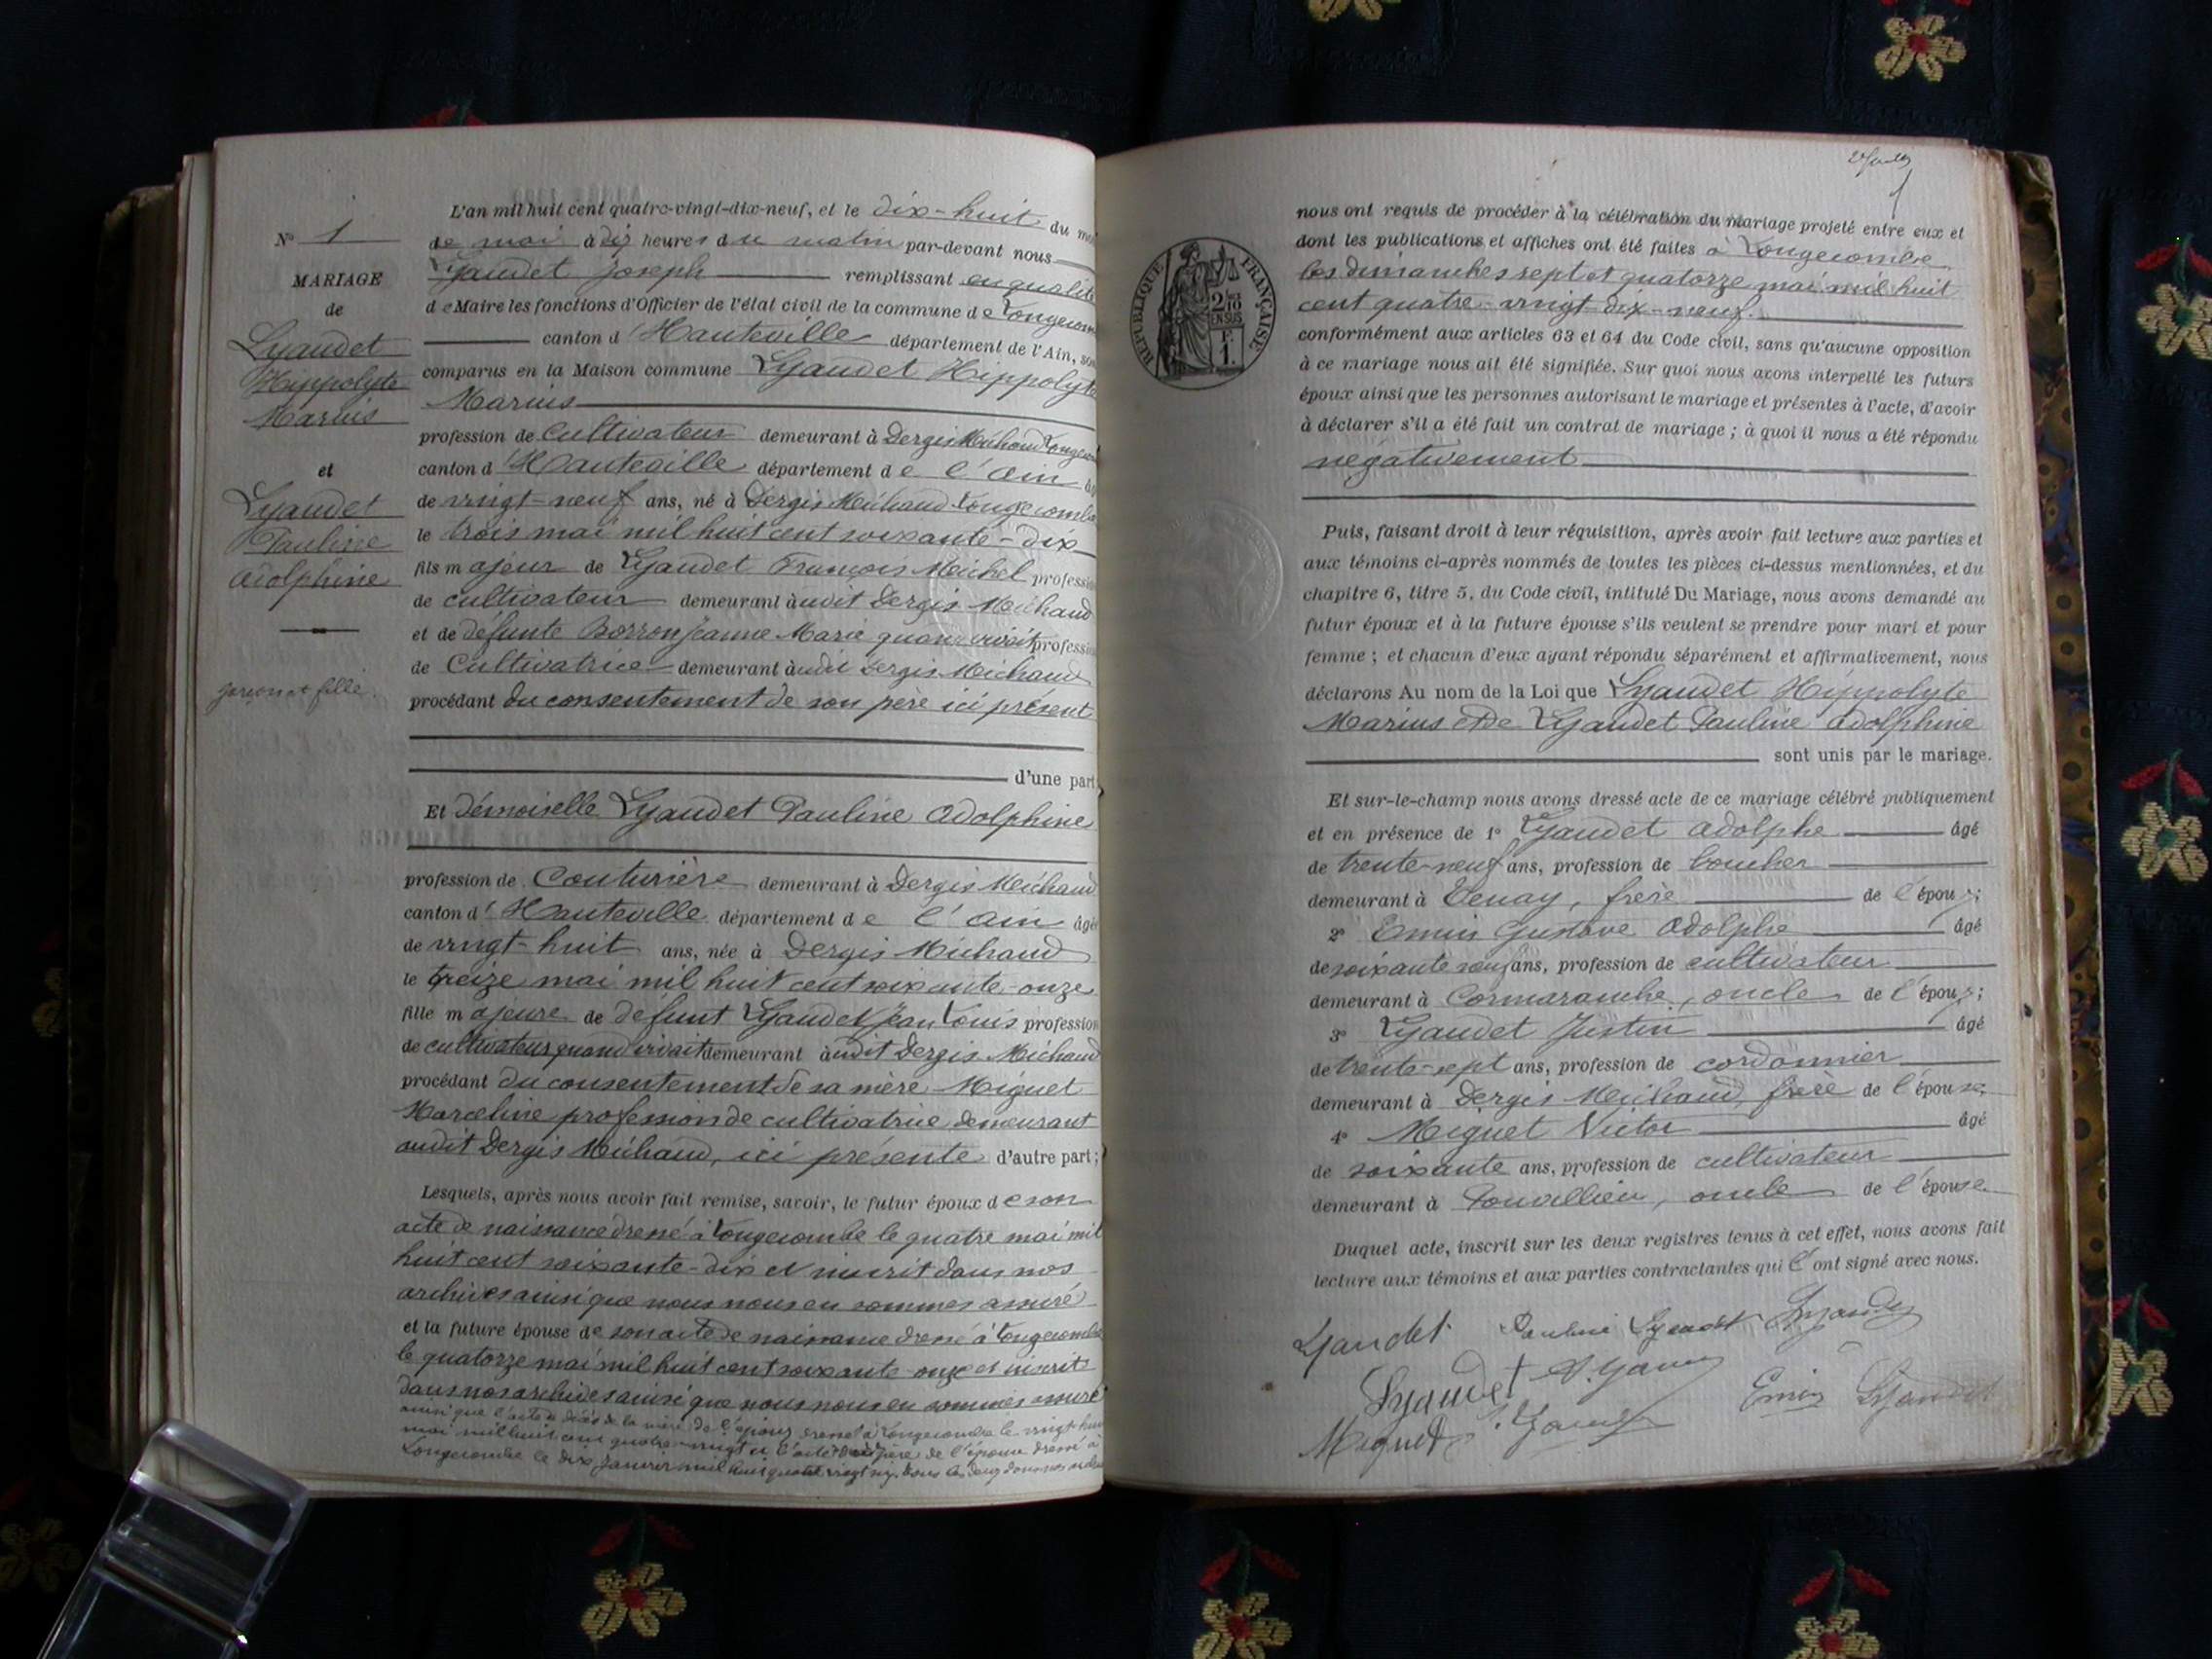 N° 1
MARIAGE
de
Lyaudet
Hippolyte
Marius
et
Lyaudet
Pauline
Adolphine
garçon et fille.
L'an mil huit cent quatre-vingt-dix-neuf, et le dix-huit du mois
de mai à dix heures du matin par-devant nous
Lyaudet Joseph remplissant en qualité
de Maire les fonctions d'Officier de l'état civil de la commune de Longecombe
canton d'Hauteville département de l'Ain, sont
comparus en la Maison commune Lyaudet Hippolyte
Marius
profession de Cultivateur demeurant à Dergis Michaud Longecombe
canton d'Hauteville département de l'Ain âgé
de vingt-neuf ans, né à Dergis Michaud Longecombe
le trois mai mil huit cent soixante-dix
fils majeur de Lyaudet François Michel profession
de cultivateur demeurant audit Dergis Michaud
et de défunte Borron Jeanne Marie quand vivait profession
de Cultivatrice demeurant audit Dergis Michaud
procédant du consentement de son père ici présent
d'une part;
Et demoiselle Lyaudet Pauline Adolphine
profession de Couturière demeurant à Dergis Michaud
canton d'Hauteville département de l'Ain âgée
de vingt-huit ans, née à Dergis Michaud
le treize mai mil huit cent soixante-onze
fille majeure de défunt Lyaudet Jean Louis profession
de cultivateur quand vivait demeurant audit Dergis Michaud
procédant du consentement de sa mère Miguet
Marceline profession de cultivatrice demeurant
audit Dergis Michaud, ici présente d'autre part;
Lesquels, après nous avoir fait remise, savoir, le futur époux de son
acte de naissance dressé à Longecombe le quatre mai mil
huit cent soixante-dix et inscrit dans nos
archives ainsi que nous nous en sommes assuré
et la future épouse de son acte de naissance dressé à Longecombe
le quatorze mai mil huit cent soixante-onze et inscrit
dans nos archives ainsi que nous nous en sommes assuré
ainsi que l'acte de décès de la mère de l'époux dressé à Longecombe le vingt-huit
mai mil huit cent quatre-vingt et l'acte de décès père de l'épouse dressé à
Longecombe le dix janvier mil huit quatre vingt six. tous les deux dans nos archives
2e feuillet
RÉPUBLIQUE FRANÇAISE
2/10 EN SUS
F. 1.
nous ont requis de procéder à la célébration du mariage projeté entre eux et
dont les publications et affiches ont été faites à Longecombe
les dimanches sept et quatorze mai mil huit
cent quatre-vingt-dix-neuf.
conformément aux articles 63 et 64 du Code civil, sans qu'aucune opposition
à ce mariage nous ait été signifiée. Sur quoi nous avons interpellé les futurs
époux ainsi que les personnes autorisant le mariage et présentes à l'acte, d'avoir
à déclarer s'il a été fait un contrat de mariage; à quoi il nous a été répondu
négativement
Puis, faisant droit à leur réquisition, après avoir fait lecture aux parties et
aux témoins ci-après nommés de toutes les pièces ci-dessus mentionnées, et du
chapitre 6, titre 5, du Code civil, intitulé Du Mariage, nous avons demandé au
futur époux et à la future épouse s'ils veulent se prendre pour mari et pour
femme; et chacun d'eux ayant répondu séparément et affirmativement, nous
déclarons Au nom de la Loi que Lyaudet Hippolyte
Marius et de Lyaudet Pauline Adolphine
sont unis par le mariage.
Et sur-le-champ nous avons dressé acte de ce mariage célébré publiquement
et en présence de 1° Lyaudet Adolphe âgé
de trente-neuf ans, profession de boucher
demeurant à Tenay, frère de l'époux;
2° Emin Gustave Adolphe âgé
de soixante neuf ans, profession de cultivateur
demeurant à Cormaranche, oncle de l'époux;
3° Lyaudet Justin âgé
de trente-sept ans, profession de cordonnier
demeurant à Dergis Michaud, frère de l'épouse;
4° Miguet Victor âgé
de soixante ans, profession de cultivateur
demeurant à Pouvillieu, oncle de l'épouse
Duquel acte, inscrit sur les deux registres tenus à cet effet, nous avons fait
lecture aux témoins et aux parties contractantes qui l'ont signé avec nous.
Lyaudet Pauline Lyaudet Lyaudet
Lyaudet Emin Lyaudet
Miguet